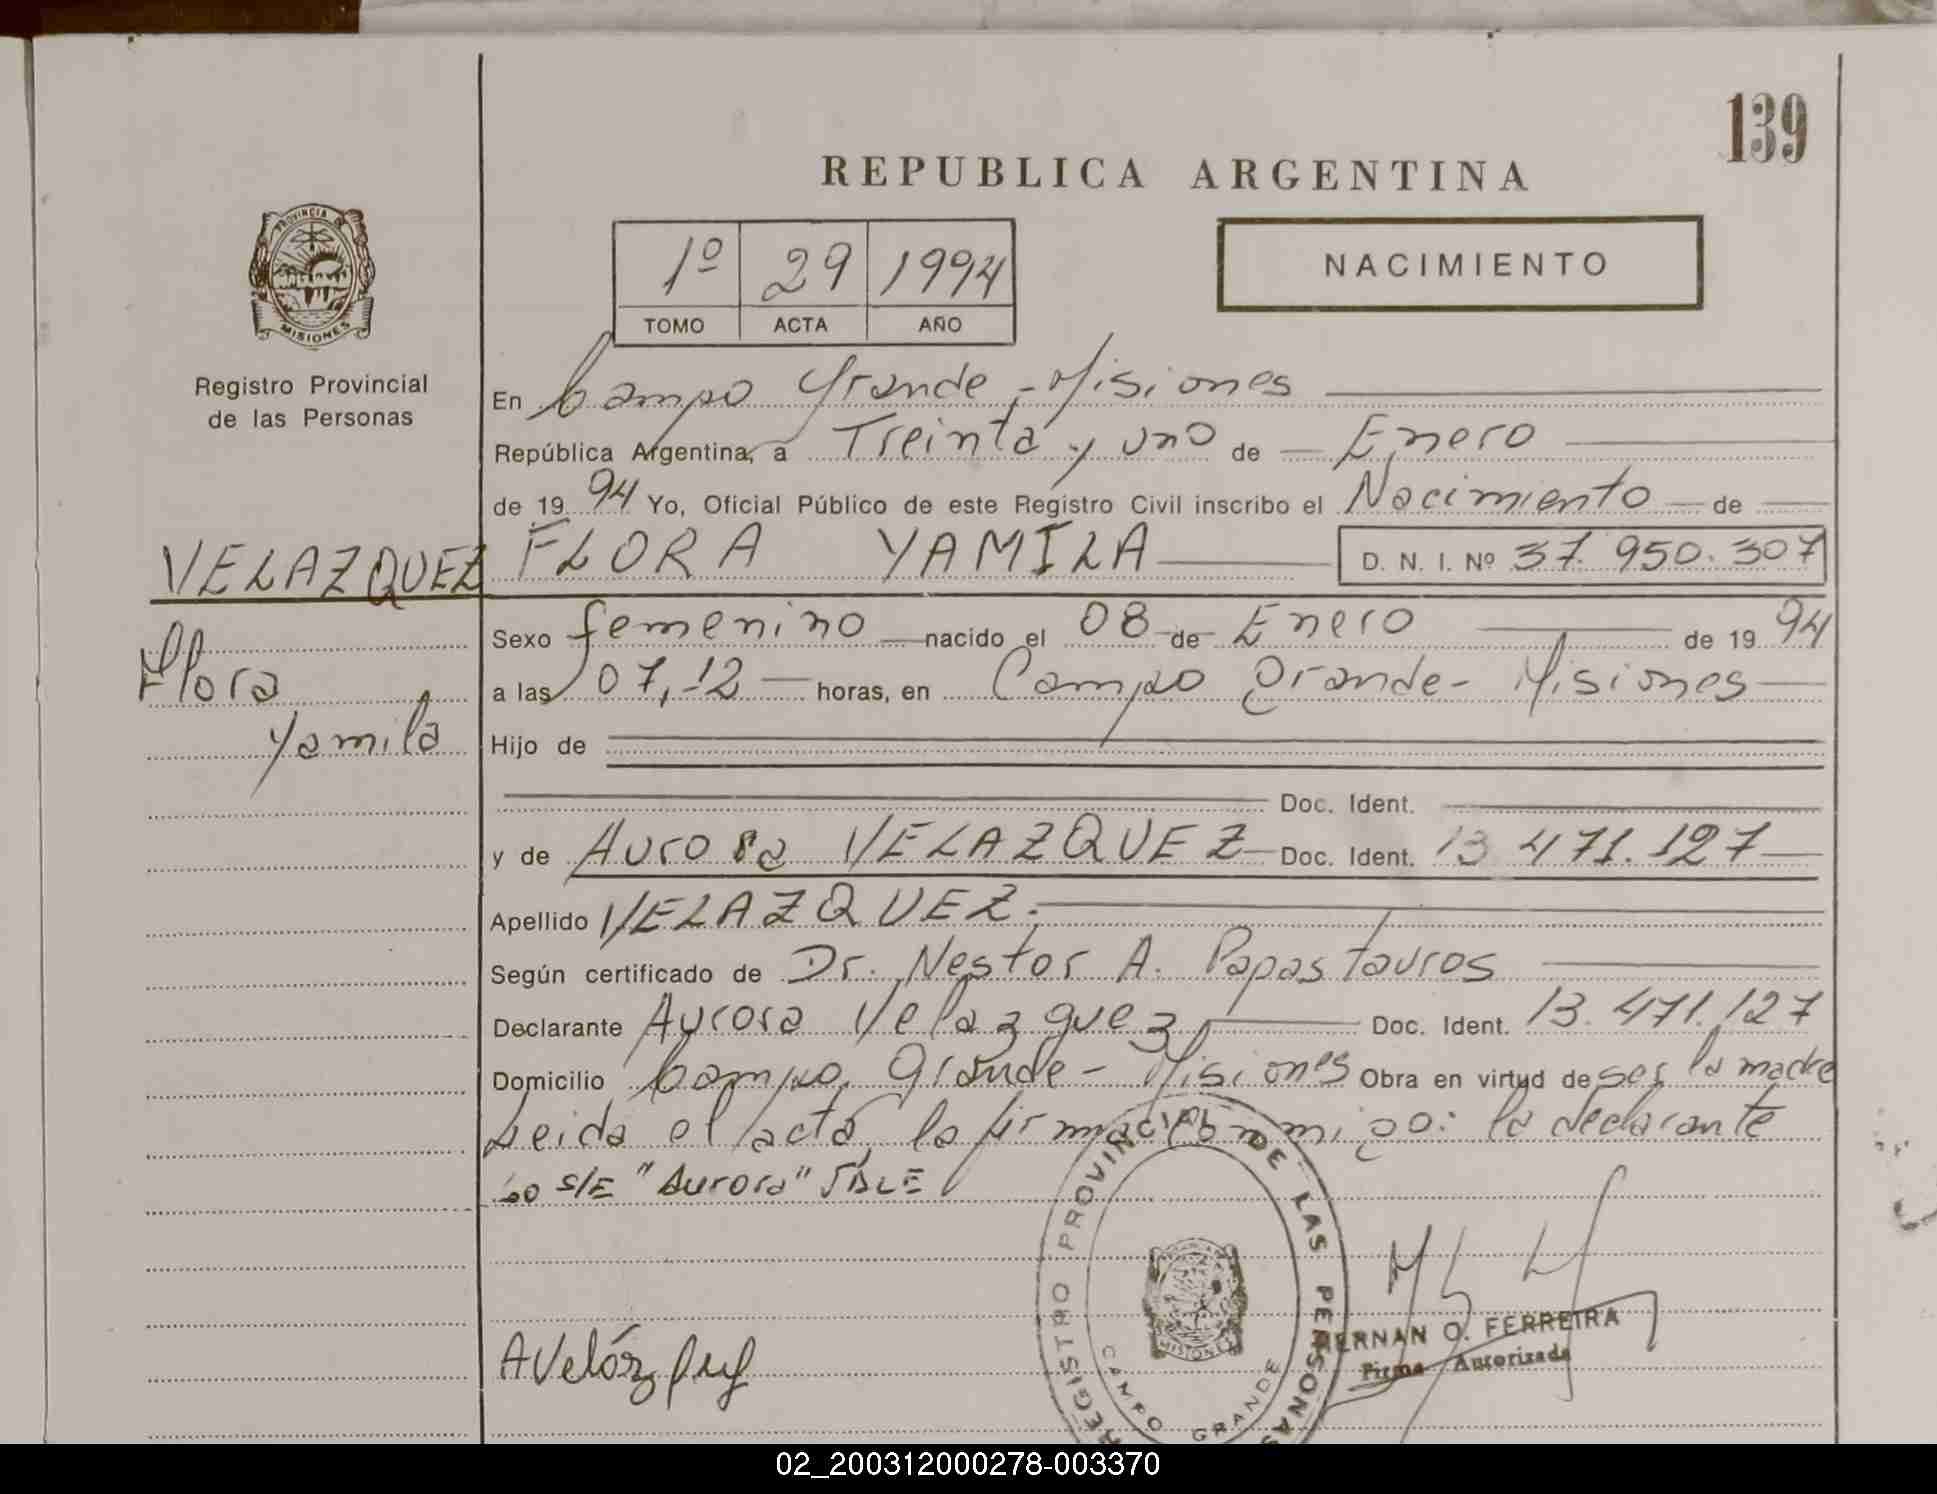 139
REPUBLICA ARGENTINA
1º 29 1994
TOMO ACTA AÑO
NACIMIENTO
PROVINCIA DE
MISIONES
Registro Provincial
de las Personas
En Campo Grande - Misiones
República Argentina, a Treinta y uno de Enero
de 19 94 Yo, Oficial Público de este Registro Civil inscribo el Nacimiento de
VELAZQUEZ FLORA YAMILA D. N. I. Nº 37.950.307
Flora
Yamila
Sexo femenino nacido el 08 de Enero de 19 94
a las 07,12 horas, en Campo Grande - Misiones
Hijo de
Doc. Ident.
y de Aurora VELAZQUEZ Doc. Ident. 13 471.127
Apellido VELAZQUEZ.
Según certificado de Dr. Nestor A. Papastauros
Declarante Aurora Velazquez Doc. Ident. 13.471.127
Domicilio Campo Grande - Misiones Obra en virtud de ser la madre
Leida el acta, la firma conmigo: la declarante
so s/E "Aurora" VALE
REGISTRO PROVINCIAL DE LAS PERSONAS
MISIONES
CAMPO GRANDE
HERNAN O. FERREIRA
Firma Autorizada
02_200312000278-003370